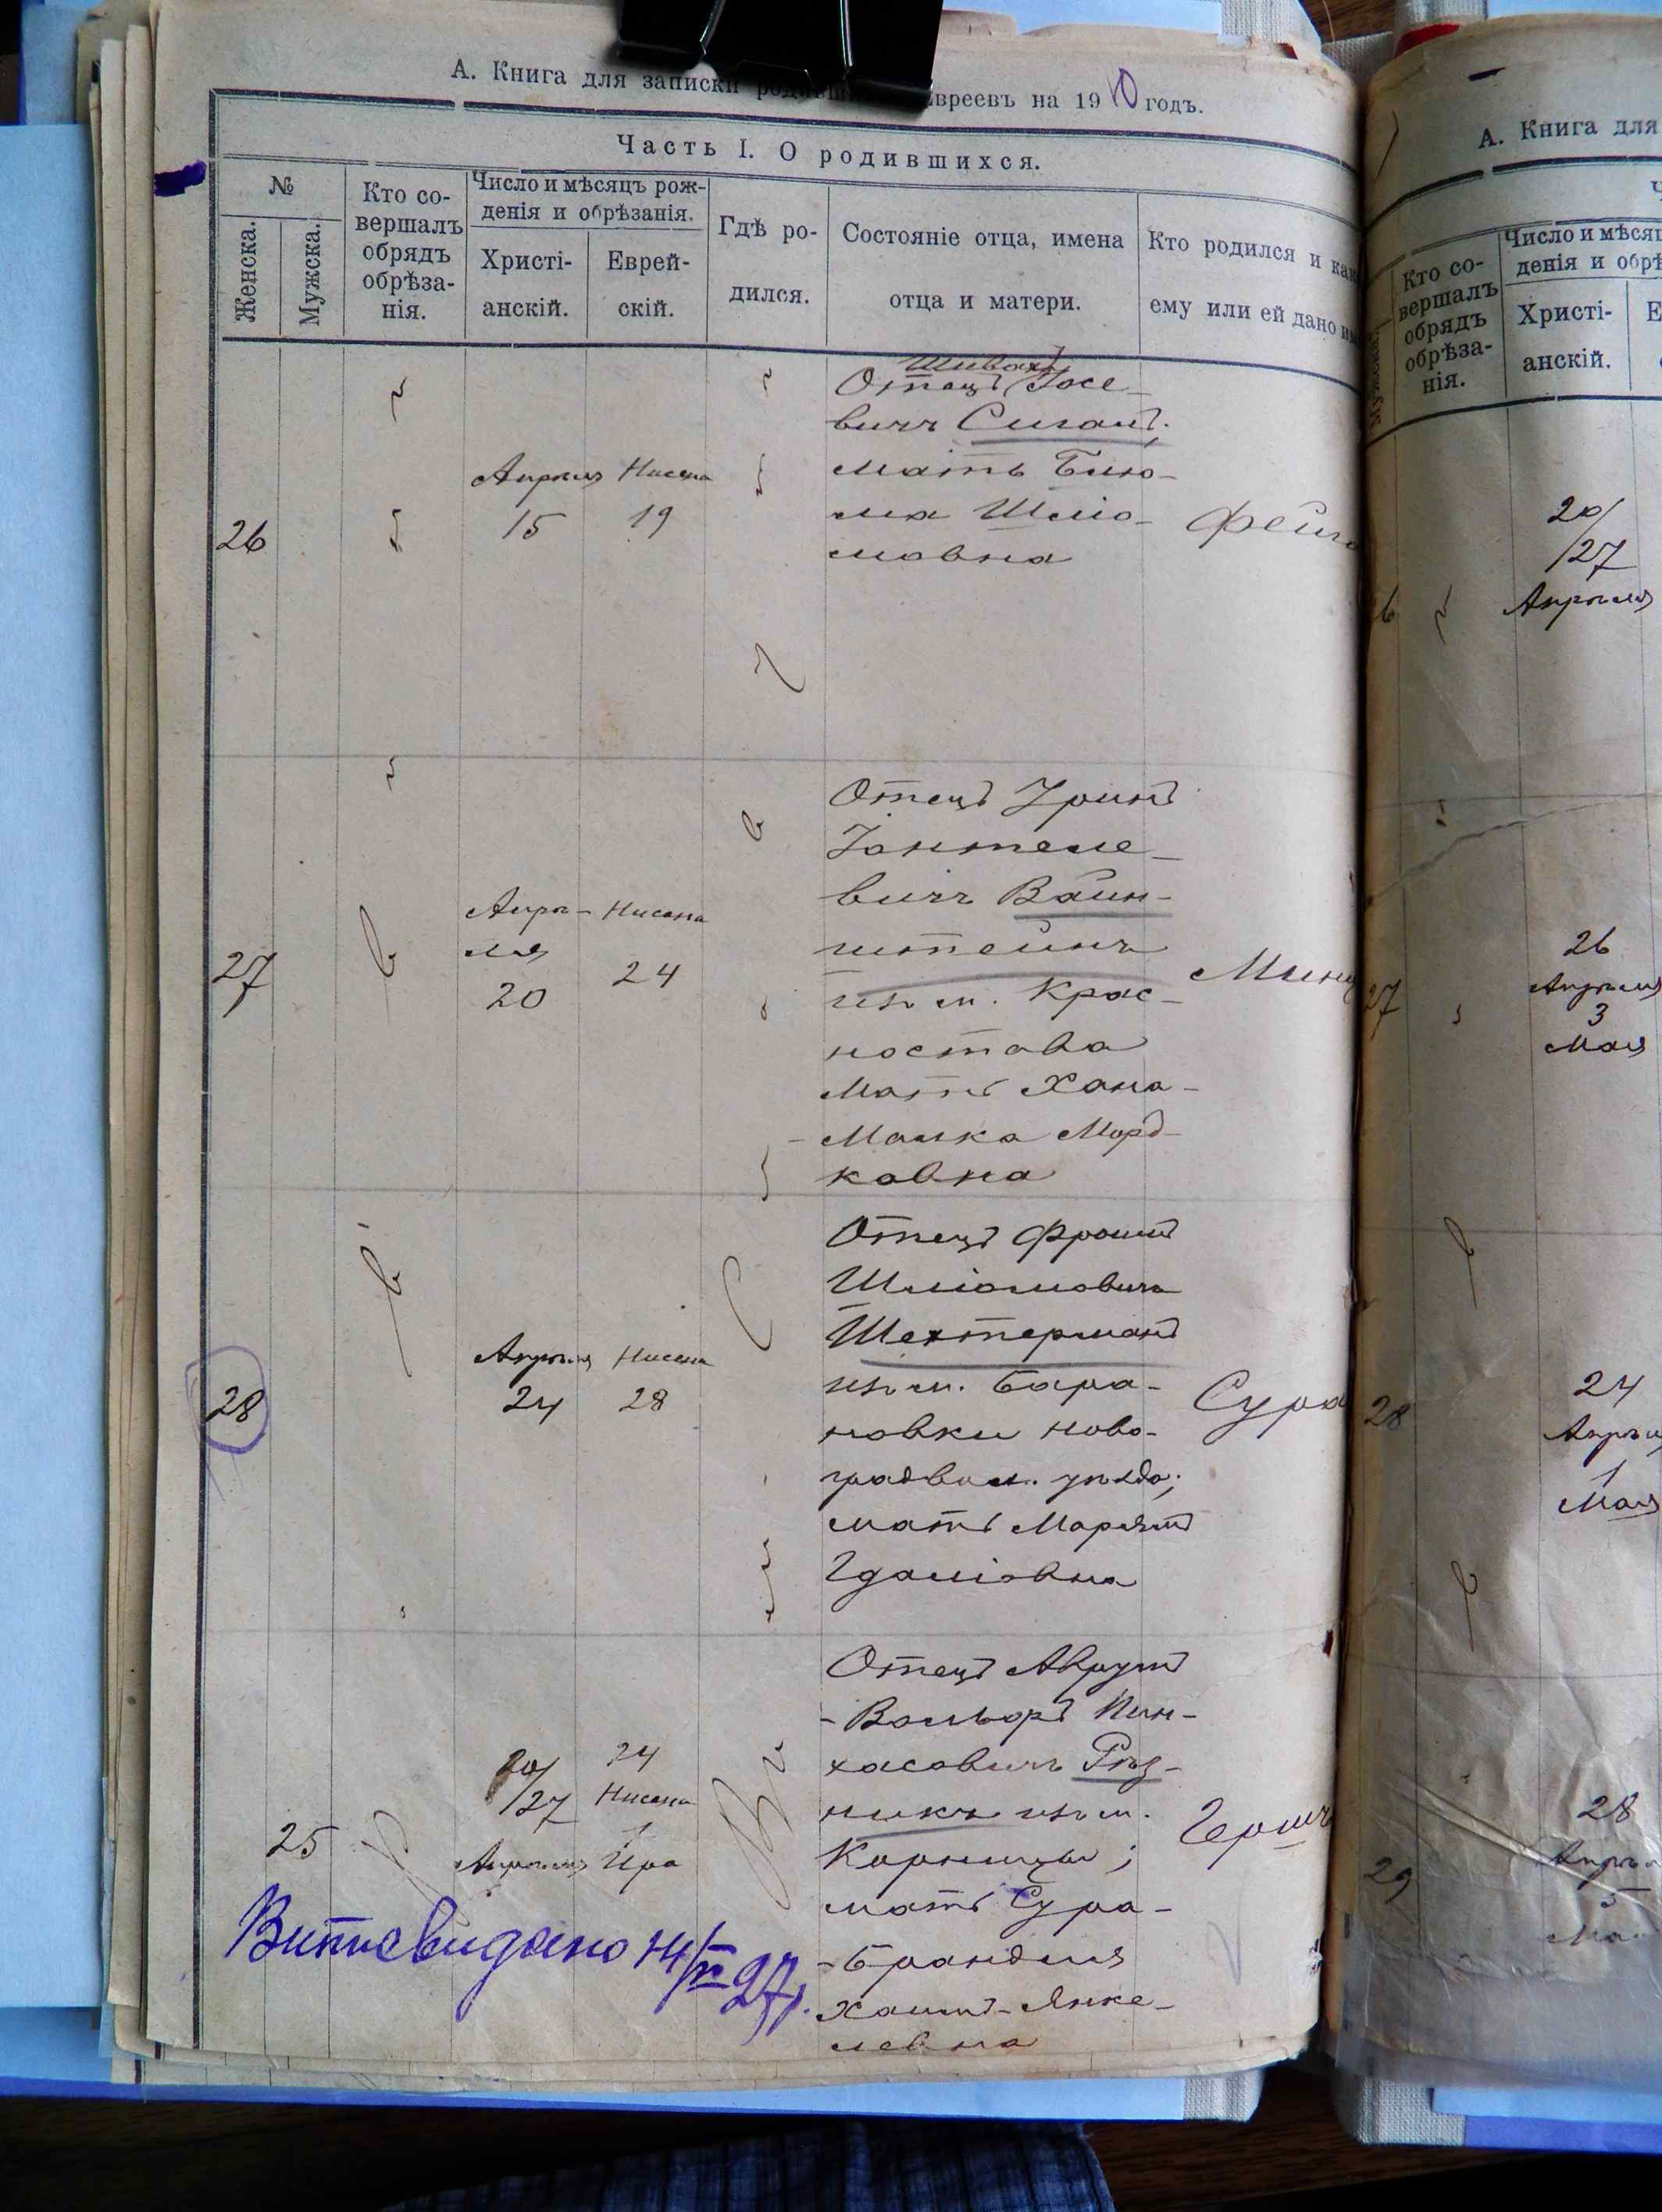 А. Книга для записки родивш Евреевъ на 1910 годъ.
Часть I. О родившихся.
№
Женска.
Мужска.
Кто со-
вершалъ
обрядъ
обрѣза-
нія.
Число и мѣсяцъ рож-
денія и обрѣзанія.
Христі-
анскій.
Еврей-
скій.
Гдѣ ро-
дился.
Состояніе отца, имена
отца и матери.
Кто родился и как
ему или ей дано им
26
Апрѣля
15
Нисана
19
Шивах
Отецъ Іосе-
вичъ Сиганъ;
мать Бию-
ма Шліо-
мовна
Фейга
27
Апрѣ-
ля
20
Нисана
24
Отецъ Уринъ
Іонтеле-
вичъ Вайн-
штейнъ
изъ м. Крас-
ностава
Мать Хана-
-Малка Морд-
ковна
Минц
28
Апрѣля
24
Нисана
28
Отецъ Фроимъ
Шліомовичъ
Шехтерманъ
изъ м. Бара-
новки Ново-
градвол. уѣзда;
мать Марьямъ
Гдаліовна
Сура
25
20/
/27
Апрѣля
24
Нисана
1
Іира
Отецъ Аврумъ
-Вольфъ Пин-
хасовичъ Рѣз-
никъ изъ м.
Корницы;
мать Сура-
-Брандля
Хаимъ-Янке-
левна
Гершъ
Витг свидано 14/IV 27р.
А. Книга для
Мужска.
Кто со-
вершалъ
обрядъ
обрѣза-
нія.
Число и мѣсяц
денія и обрѣ
Христі-
анскій.
Е
20/
/27
Апрѣля
26
27
26
Апрѣля
3
Мая
28
24
Апрѣля
1
Мая
29
28
Апрѣля
5
Мая